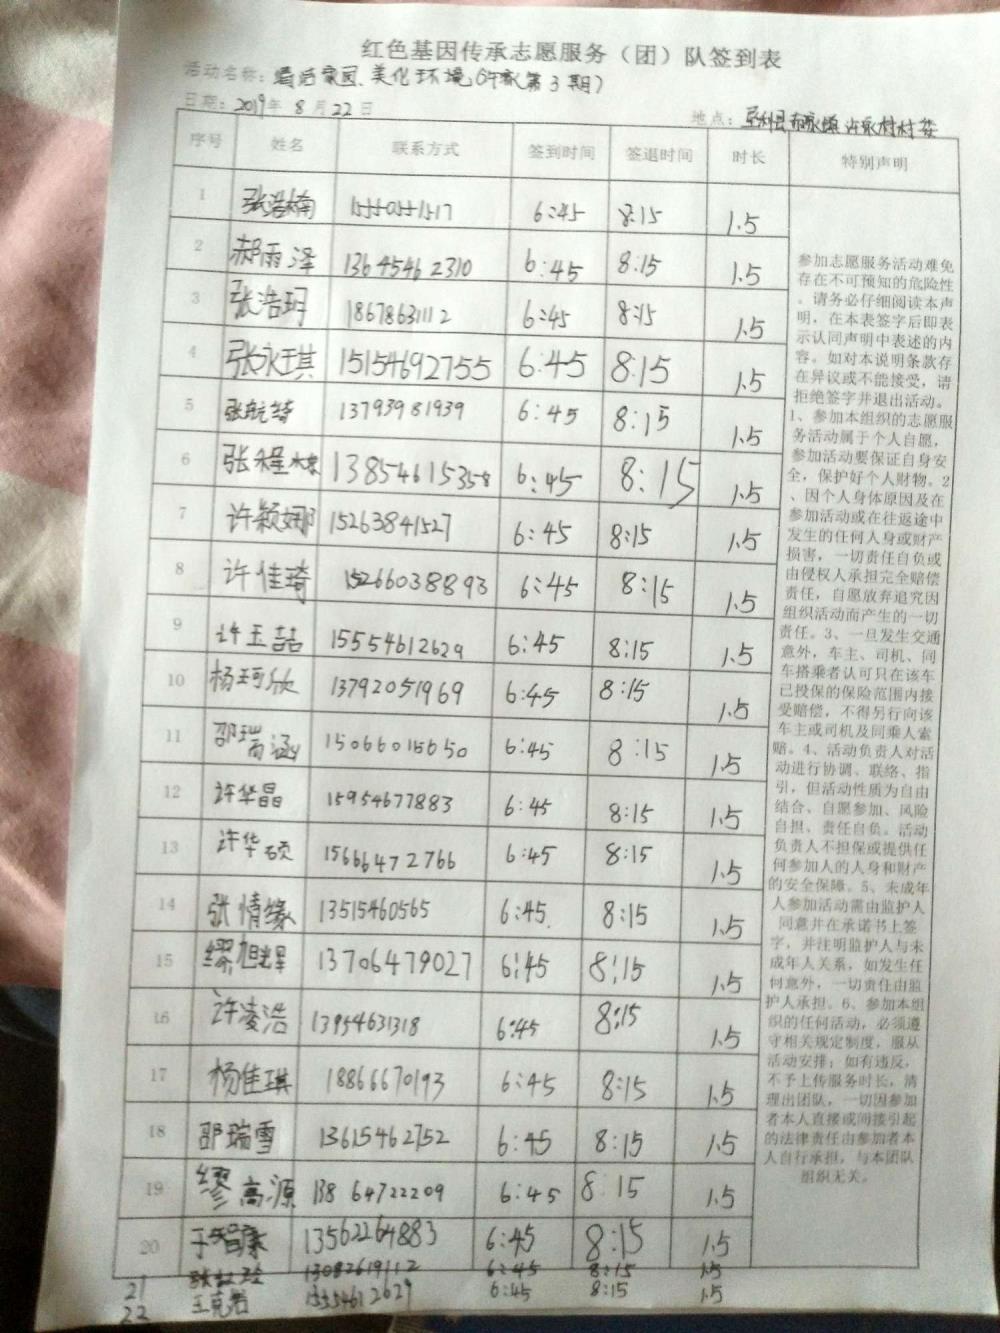 红色基因传承志愿服务（团）队签到表
活动名称：清洁家园、美化环境（许家第3期）
日期：2019年 8月22日 地点：许家村村委
序号 姓名 联系方式 签到时间 签退时间 时长 特别声明
1 张浩楠 15550551517 6:45 8:15 1.5
2 郝雨泽 13645462310 6:45 8:15 1.5
3 张浩玥 18678631112 6:45 8:15 1.5
4 张永琪 15154692755 6:45 8:15 1.5
5 张航绮 13793981939 6:45 8:15 1.5
6 张程 138546153558 6:45 8:15 1.5
7 许颖娜 15263841527 6:45 8:15 1.5
8 许佳琦 15266038893 6:45 8:15 1.5
9 许玉喆 15554612629 6:45 8:15 1.5
10 杨珂欣 13792051969 6:45 8:15 1.5
11 邵瑞涵 15066015650 6:45 8:15 1.5
12 许华晶 15954677883 6:45 8:15 1.5
13 许华硕 15666472766 6:45 8:15 1.5
14 张情缘 13515460565 6:45. 8:15 1.5
15 缪旭 13706479027 6:45 8:15 1.5
16 许凌浩 13954631318 6:45 8:15 1.5
17 杨佳琪 18866670193 6:45 8:15 1.5
18 邵瑞雪 13615462752 6:45 8:15 1.5
19 缪高源 13864722209 6:45 8:15 1.5
20 于智康 13562264883 6:45 8:15 1.5
21 张 13082619112 6:45 8:15 1.5
22 王克岩 15554612629 6:45 8:15 1.5
参加志愿服务活动难免
存在不可预知的危险性
。请务必仔细阅读本声
明，在本表签字后即表
示认同声明中表述的内
容。如对本说明条款存
在异议或不能接受，请
拒绝签字并退出活动。
1、参加本组织的志愿服
务活动属于个人自愿，
参加活动要保证自身安
全，保护好个人财物。2
、因个人身体原因及在
参加活动或在往返途中
发生的任何人身或财产
损害，一切责任自负或
由侵权人承担完全赔偿
责任，自愿放弃追究因
组织活动而产生的一切
责任。3、一旦发生交通
意外，车主、司机、同
车搭乘者认可只在该车
已投保的保险范围内接
受赔偿，不得另行向该
车主或司机及同乘人索
赔。4、活动负责人对活
动进行协调、联络、指
引，但活动性质为自由
结合、自愿参加、风险
自担、责任自负。活动
负责人不担保或提供任
何参加人的人身和财产
的安全保障。5、未成年
人参加活动需由监护人
同意并在承诺书上签
字，并注明监护人与未
成年人关系，如发生任
何意外，一切责任由监
护人承担。6、参加本组
织的任何活动，必须遵
守相关规定制度，服从
活动安排；如有违反，
不予上传服务时长，清
理出团队，一切因参加
者本人直接或间接引起
的法律责任由参加者本
人自行承担，与本团队
组织无关。